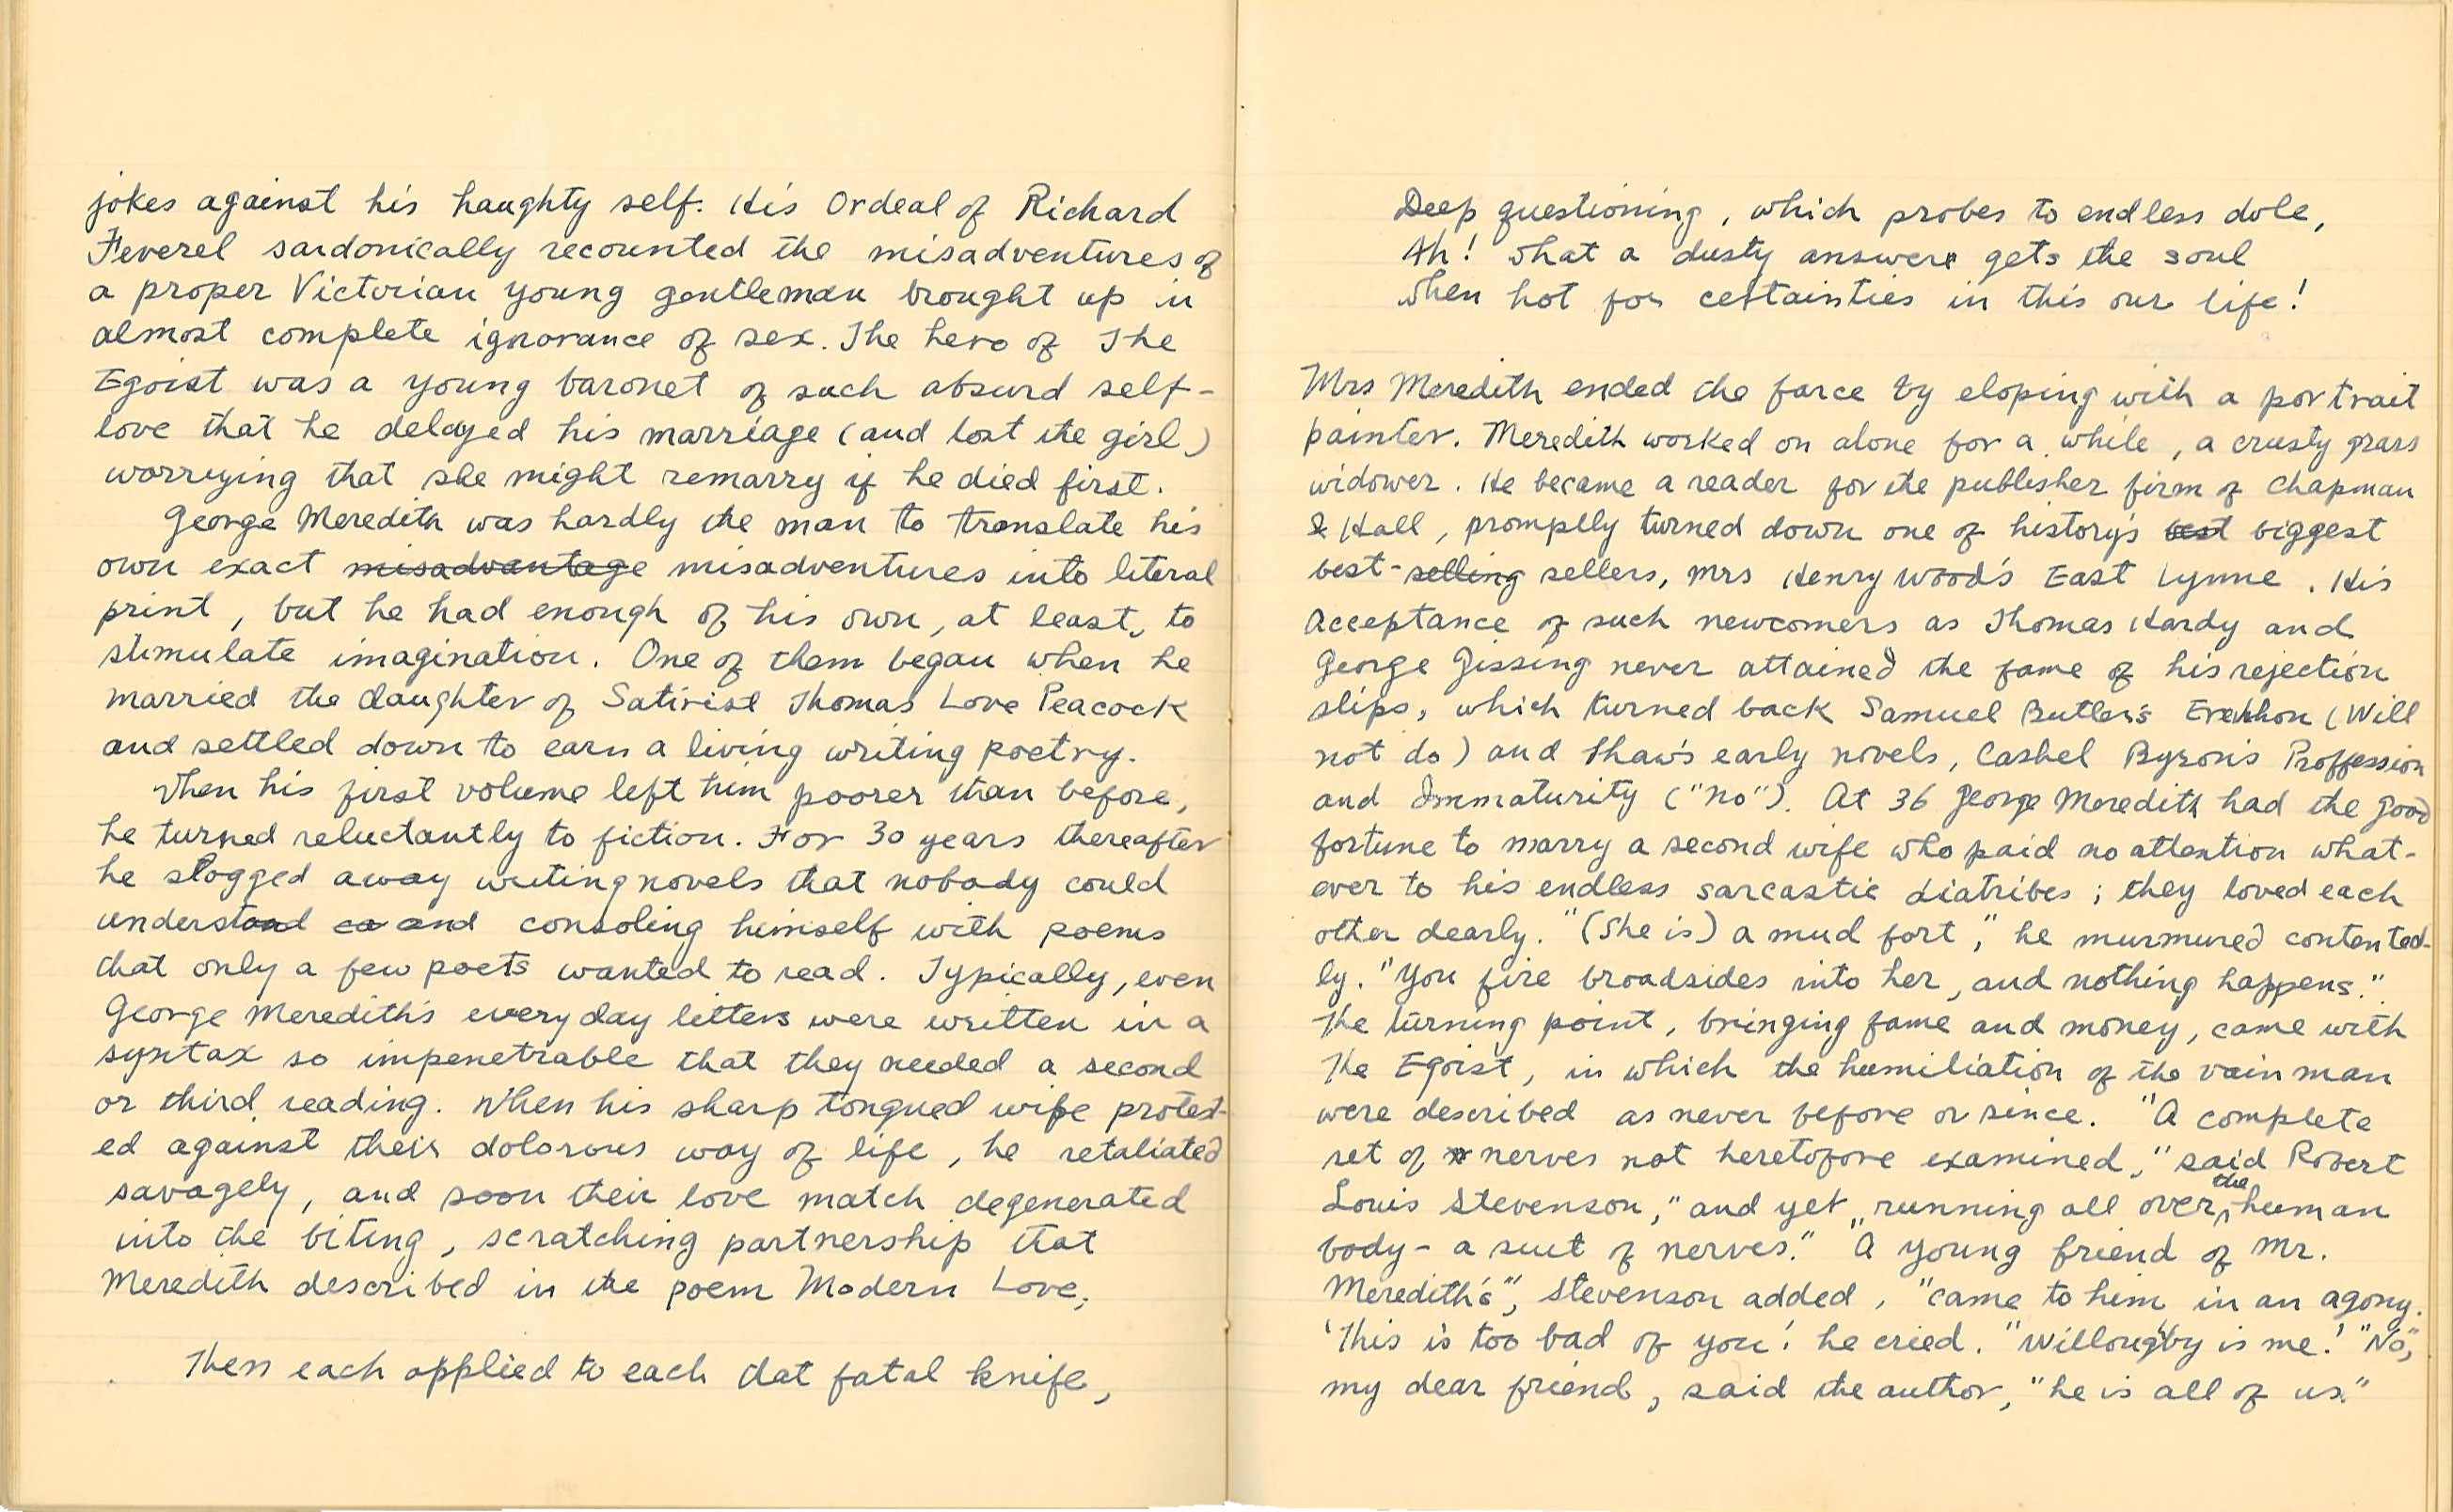 jokes against his haughty self. His Ordeal of Richard
Feverel sardonically recounted the misadventures of
a proper Victorian young gentleman brought up in
almost complete ignorance of sex. The hero of The
Egoist was a young baronet of such absurd self-
love that he delayed his marriage (and lost the girl)
worrying that she might remarry if he died first.
George Meredith was hardly the man to translate his
own exact misadvantage misadventures into literal
print, but he had enough of his own, at least, to
stimulate imagination. One of them began when he
married the daughter of Satirist Thomas Love Peacock
and settled down to earn a living writing poetry.
When his first volume left him poorer than before,
he turned reluctantly to fiction. For 30 years thereafter
he slogged away writing novels that nobody could
understand ca and consoling himself with poems
that only a few poets wanted to read. Typically, even
George Meredith's everyday letters were written in a
syntax so impenetrable that they needed a second
or third reading. When his sharp tongued wife protest-
ed against their dolorous way of life, he retaliated
savagely, and soon their love match degenerated
into the biting, scratching partnership that
Meredith described in the poem Modern Love;
Then each applied to each that fatal knife,
Deep questioning, which probes to endless dole,
Ah! What a dusty answer gets the soul
When hot for certainties in this our life!
Mrs Meredith ended the farce by eloping with a portrait
painter. Meredith worked on alone for a while, a crusty grass
widower. He became a reader for the publisher firm of Chapman
& Hall, promptly turned down one of history's best biggest
best-selling sellers, Mrs Henry Wood's East Lynne. His
Acceptance of such newcomers as Thomas Hardy and
George Gissing never attained the fame of his rejection
slips, which turned back Samuel Butler's Erewhon (Will
not do) and Shaw's early novels, Cashel Byron's Proffession
and Immaturity ("No"). At 36 George Meredith had the good
fortune to marry a second wife who paid no attention what-
ever to his endless sarcastic diatribes; they loved each
other dearly. "(She is) a mud fort," he murmured contented-
ly. "You fire broadsides into her, and nothing happens."
The turning point, bringing fame and money, came with
The Egoist, in which the humiliation of the vain man
were described as never before or since. "A complete
set of nerves not heretofore examined," said Robert
Louis Stevenson," and yet "running all over the human
body - a suit of nerves." "A young friend of Mr.
Meredith's", Stevenson added, "came to him in an agony.
'This is too bad of you! he cried. "Willoughby is me! "No",
my dear friend, said the author, "he is all of us."